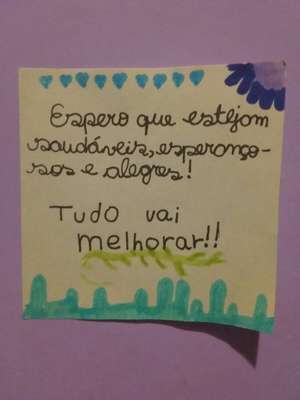 Espero que estejam
saudáveis, esperanço-
sos e alegres!
Tudo vai
melhorar!!